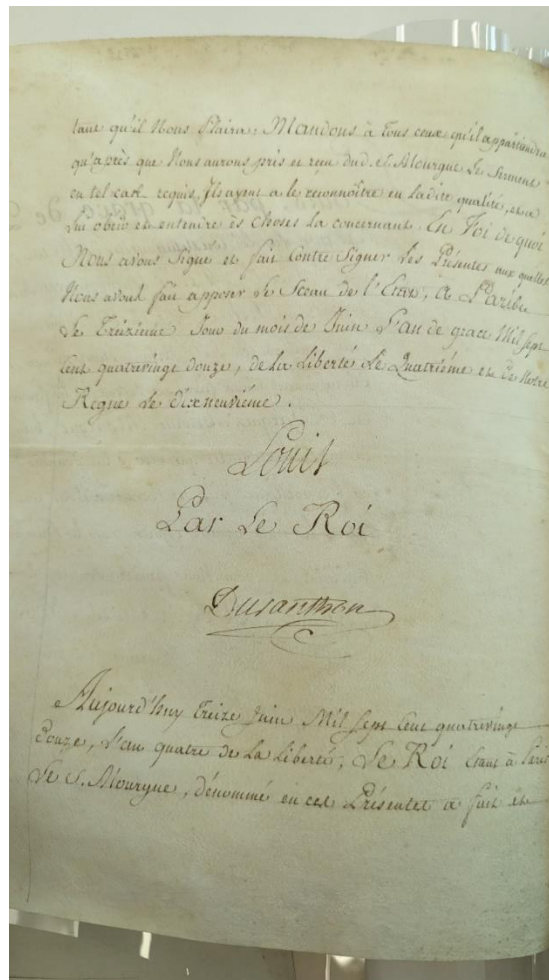 tant qu'il Nous Plaira; Mandons à Tous ceux qu'il appartiendra
qu'après que Nous aurons pris et reçu dud. S. Mourgue Le Serment
en tel cas requis, Ils ayent a le reconnoître en ladite qualité, et a
Lui obeir et entendre ès choses la concernant. En Foi de quoi
Nous avons Signé et fait Contre Signer Les Présentes aux quelles
Nous avons fait apposer Le Sceau de l'Etat, à Paris le
Le Treizieme Jour du mois de Juin L'an de grace Mil sept
Cent quatrevingt douze, de la Liberté Le Quatriéme et de Notre
Regne Le dixneuviéme.
Louis
Par Le Roi
Duranthon
Aujourd'huy Treize Juin Mil sept Cent quatrevingt
Douze, L'an quatre de La Liberté, Le Roi étant à Paris
Le S. Mourgue, dénommé en ces Présentes a fait et